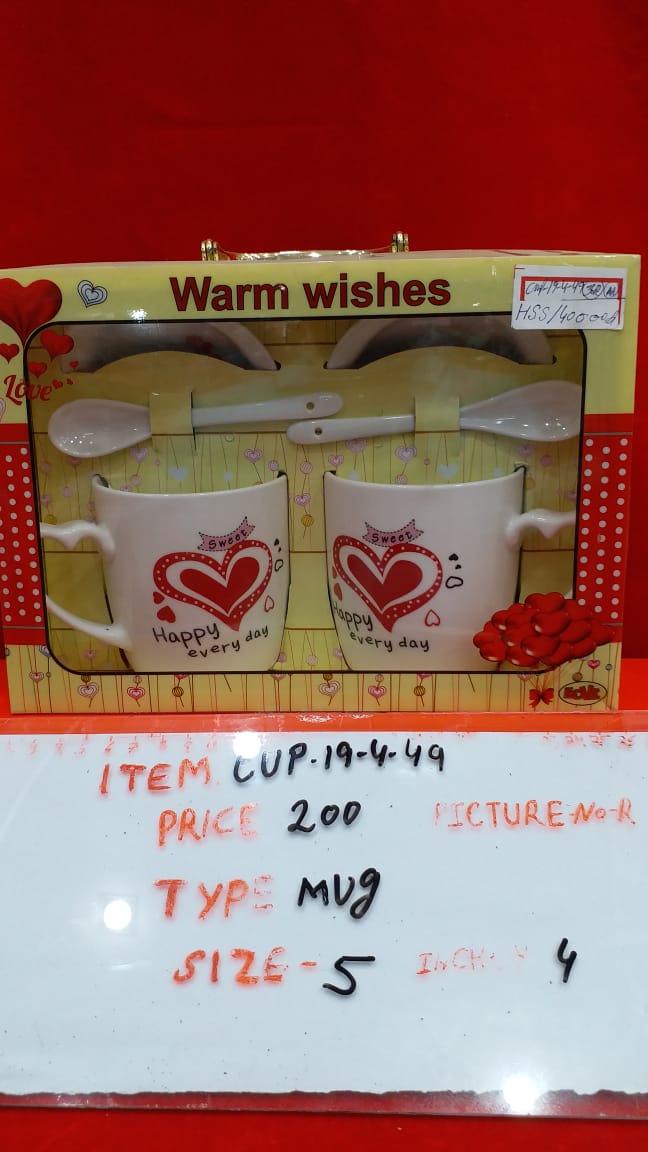 Warm wishes
HSS/400
Love
Sweet
Happy
every day
Sweet
Happy
every day
ITEM CUP-19-4-49
PRICE 200 PICTURE-No-R
TYPE Mug
SIZE-5 4